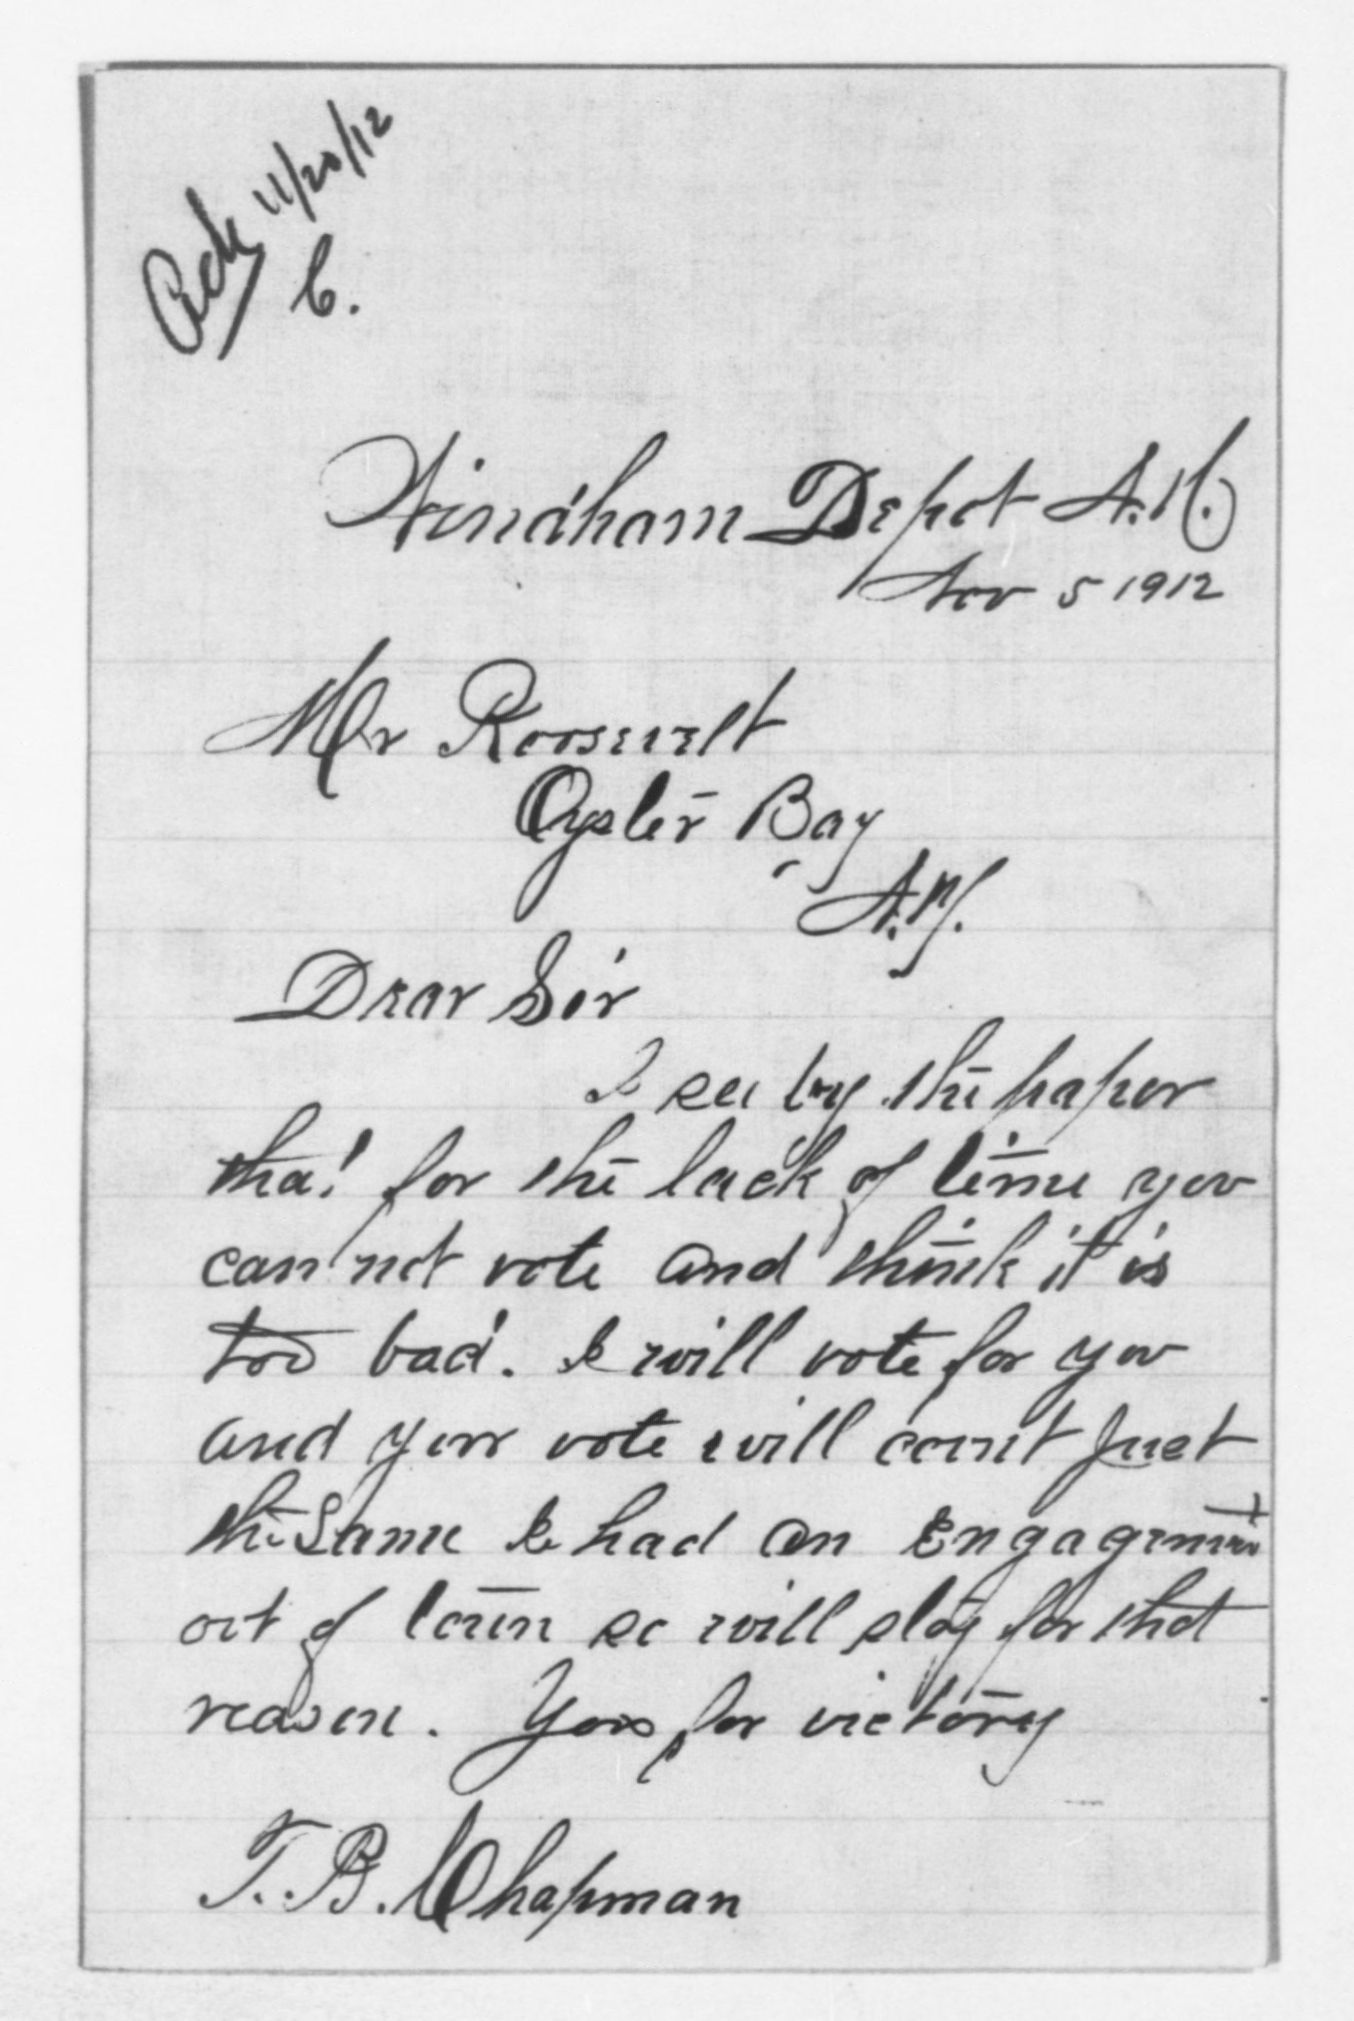 Ack 11/20/12
C.
Windham Depot N.H.
Nov 5 1912
Mr Roosevelt
Oyster Bay
N.Y.
Dear Sir
I see by the paper
that for the lack of time you
can not vote and think it is
too bad. I will vote for you
and your vote will count just
the same I had an engagement
out of town so will stay for that
reason. Yors for victory
T. B. Chapman